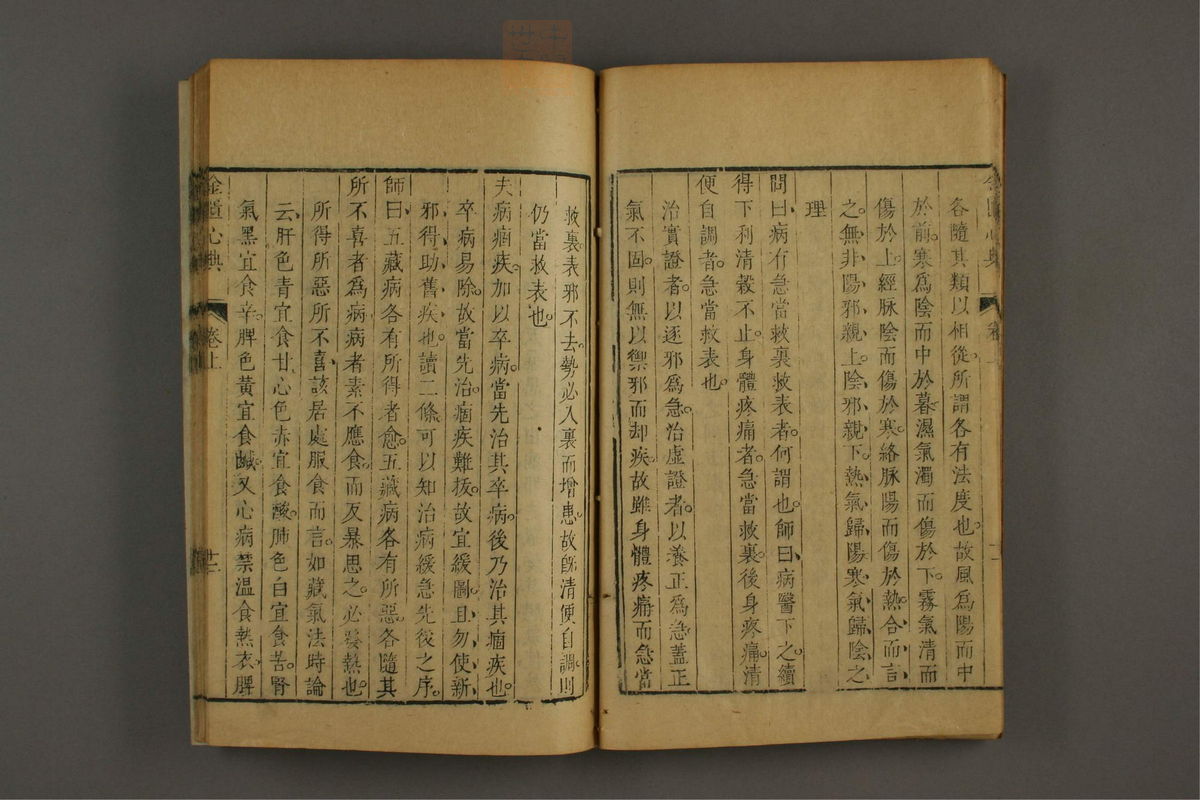 各隨其類以相從。所謂各有法度也。故風爲陽而中
於前。寒爲陰而中於暮。濕氣濁而傷於下。霧氣清而
傷於上。經脉陰而傷於寒。絡脉陽而傷於熱。合而言
之。無非陽邪親上。陰邪親下。熱氣歸陽。寒氣歸陰之
理
問曰。病有急當救裏救表者。何謂也。師曰。病醫下之。續
得下利清穀不止。身體疼痛者。急當救裏。後身疼痛。清
便自調者。急當救表也。
治實證者。以逐邪爲急。治虛證者。以養正爲急。蓋正
氣不固。則無以禦邪而却疾。故雖身體疼痛。而急當
救裏。表邪不去。勢必入裏而增患。故旣清便自調。則
仍當救表也。
夫病痼疾。加以卒病。當先治其卒病。後乃治其痼疾也。
卒病易除。故當先治。痼疾難拔。故宜緩圖。且勿使新
邪得助舊疾也。讀二條。可以知治病緩急先後之序。
師曰。五藏病各有所得者愈。五藏病各有所惡。各隨其
所不喜者爲病。病者素不應食。而反暴思之。必發熱也。
所得所惡所不喜。該居處服食而言。如藏氣法時論
云。肝色青。宜食甘。心色赤。宜食酸。肺色白。宜食苦。腎
氣黑。宜食辛。脾色黃。宜食鹹。又心病禁溫食熱衣。脾
金匱心典
卷上